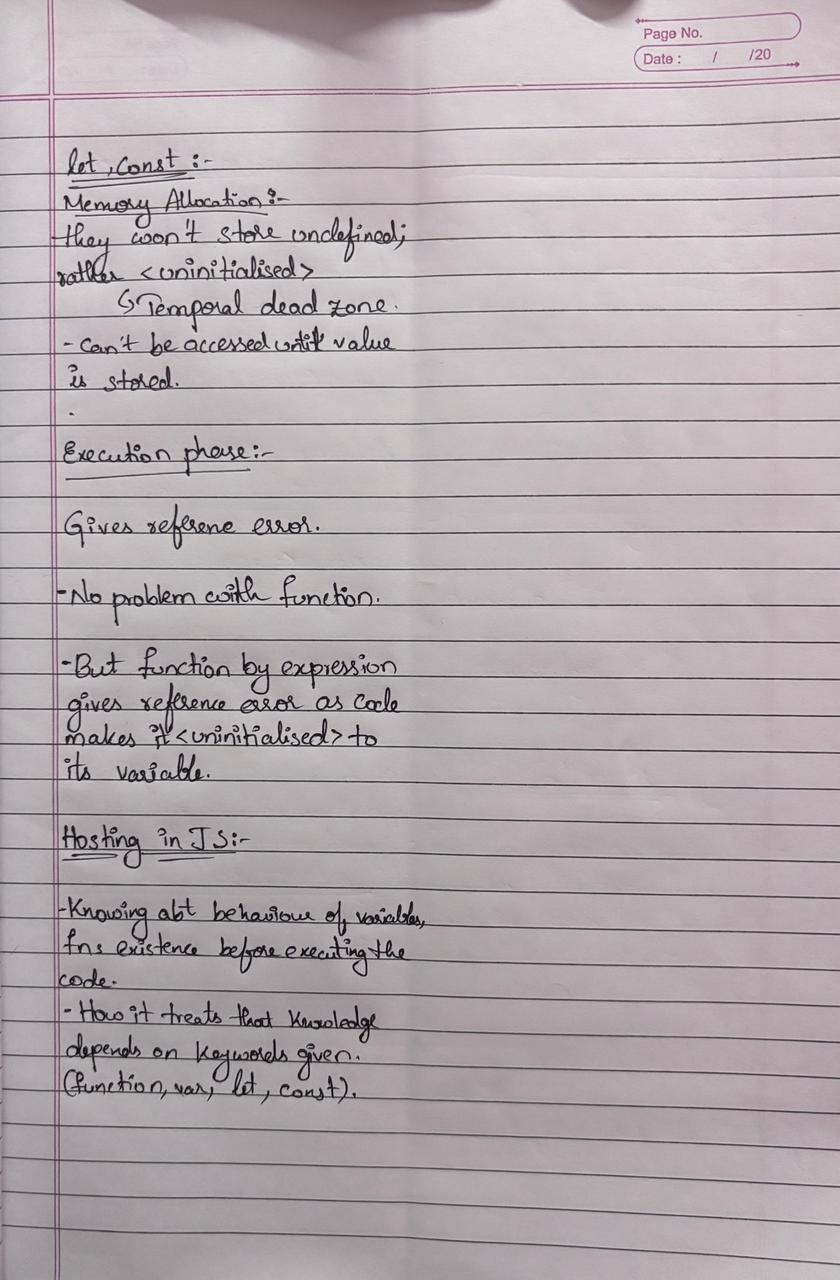 Page No.
Date : / /20
let, const :-
Memory Allocation :-
they won't store undefined;
rather <uninitialised>
↳ Temporal dead zone.
- Can't be accessed until value
is stored.
.
Execution phase:-
Gives referene error.
-No problem with function.
-But function by expression
gives reference error as code
makes it <uninitialised> to
its variable.
Hosting in JS:-
-Knowing abt behaviour of variables,
fns existence before executing the
code.
- How it treats that knowledge
depends on keywords given.
(function, var, let, const).